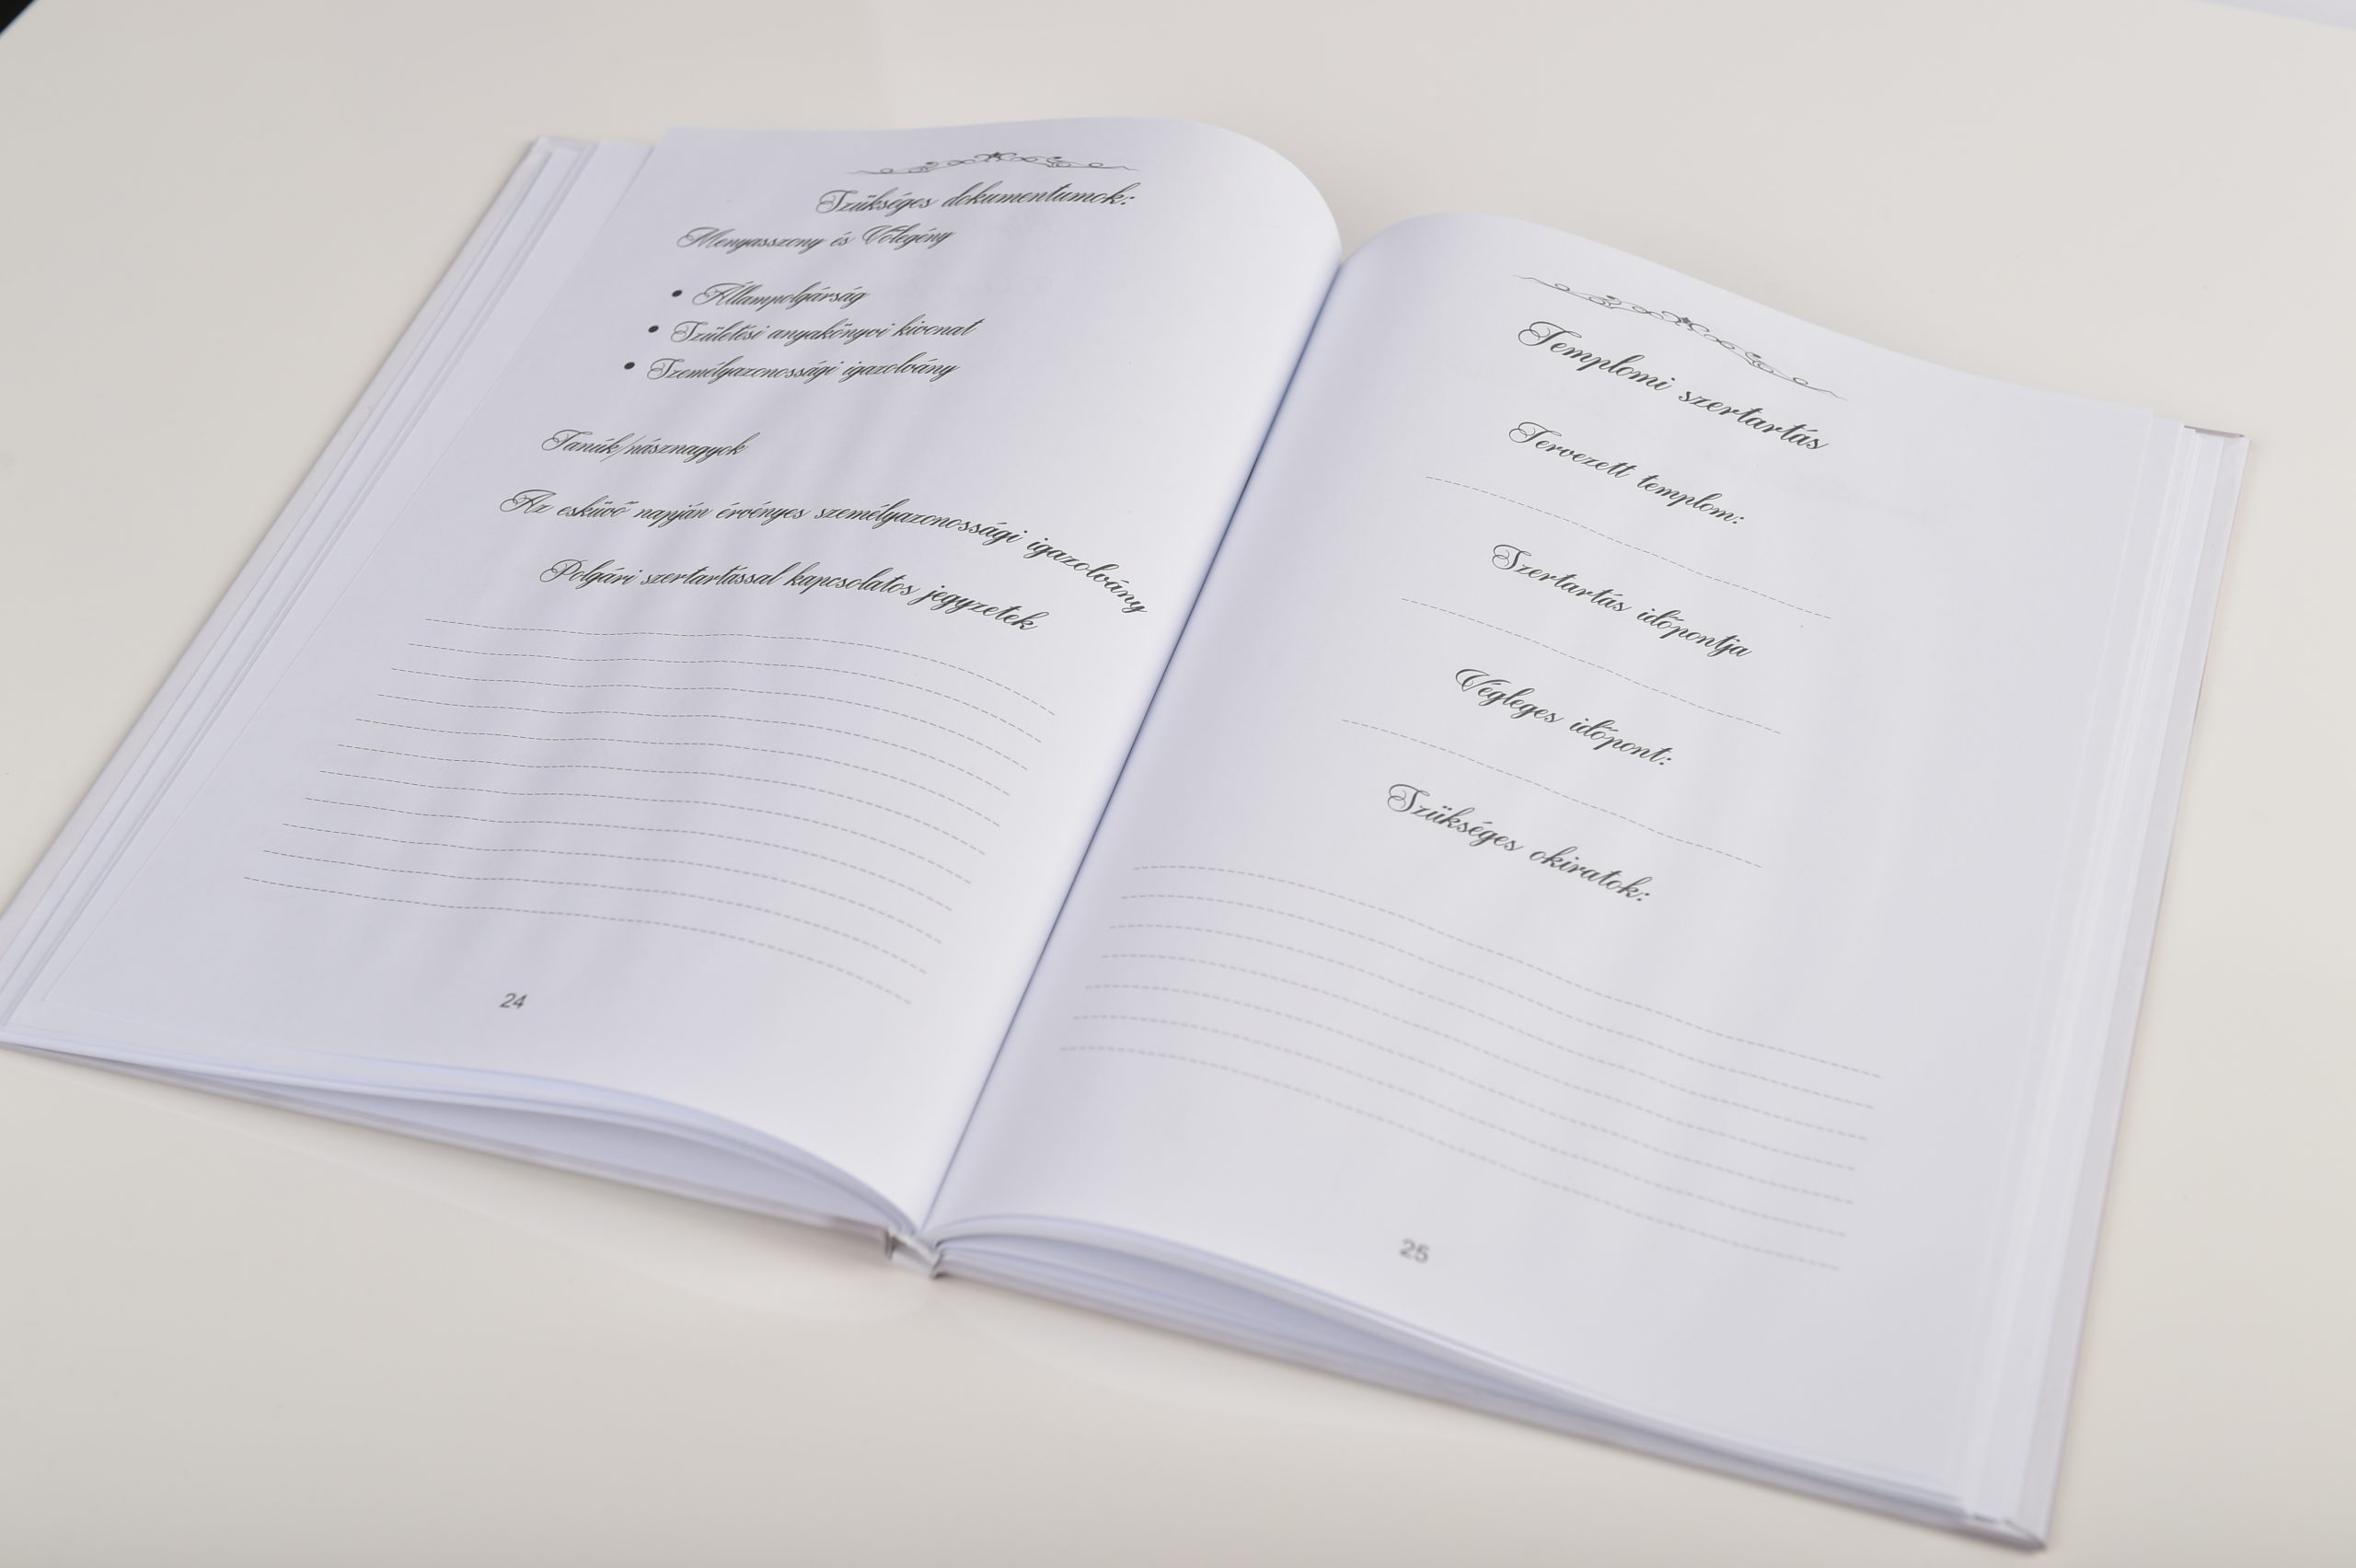 Szükséges dokumentumok:
Menyasszony és Vőlegény
• Állampolgárság
• Születési anyakönyvi kivonat
• Személyazonossági igazolvány
Tanúk/násznagyok
Az esküvő napján érvényes személyazonossági igazolvány
Polgári szertartással kapcsolatos jegyzetek
24
Templomi szertartás
Tervezett templom:
Szertartás időpontja
Végleges időpont:
Szükséges okiratok:
25